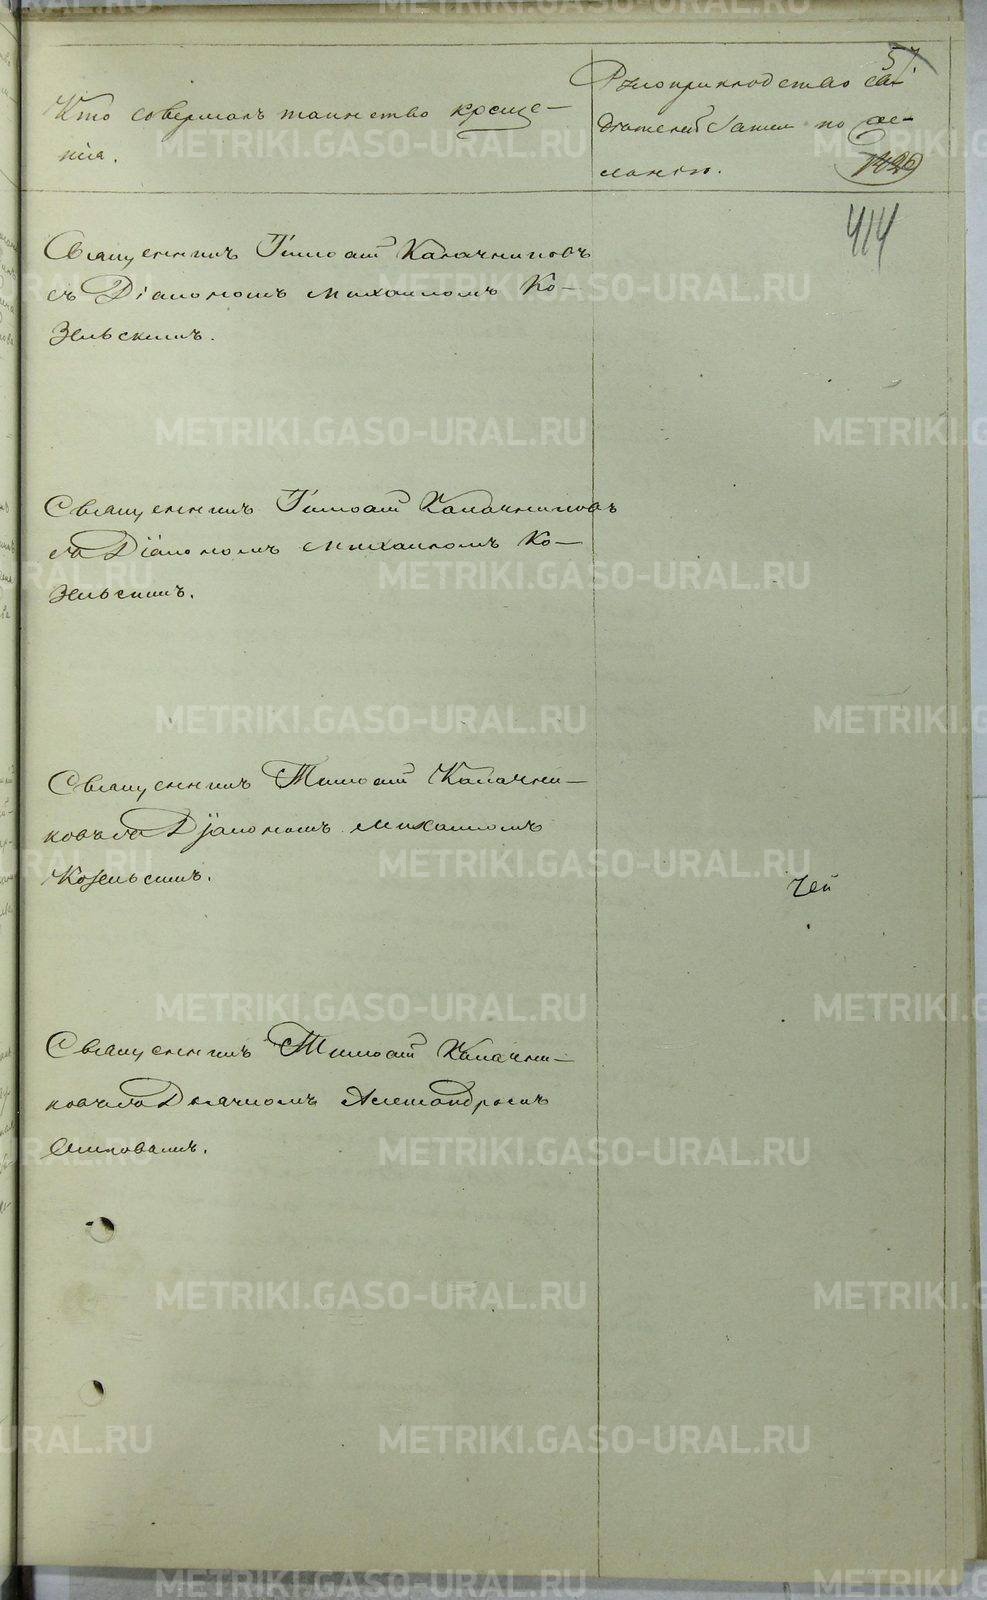 57.
Кто совершалъ таинство креще-
нія.
Рукоприкладство сви-
дѣтелей записи по же-
ланію.
414
Священникъ Тимоѳей Калачниковъ
съ Діакономъ Михаиломъ Ко-
зельскимъ.
Священникъ Тимоѳей Калачниковъ
съ Діакономъ Михаиломъ Ко-
зельскимъ.
Священникъ Тимоѳей Калачни-
ковъ съ Діакономъ Михаиломъ
Козельскимъ.
Священникъ Тимоѳей Калачни-
ковъ съ Дьячкомъ Александромъ
METRIKI.GASO-URAL.RU